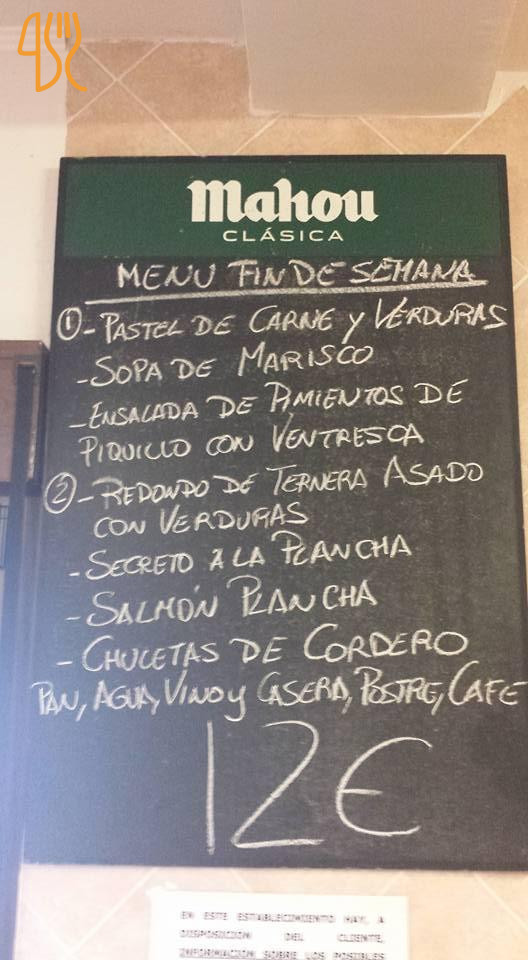 Mahou
CLÁSICA
MENU FIN DE SEMANA
① - PASTEL DE CARNE Y VERDURAS
- SOPA DE MARISCO
- ENSALADA DE PIMIENTOS DE
PIQUILLO CON VENTRESCA
② - REDONDO DE TERNERA ASADO
CON VERDURAS
- SECRETO A LA PLANCHA
- SALMÓN PLANCHA
- CHULETAS DE CORDERO
PAN, AGUA, VINO Y CASERA, POSTRE, CAFE
12€
EN ESTE ESTABLECIMIENTO HAY, A
DISPOSICION DEL CLIENTE,
INFORMACION SOBRE LOS POSIBLES